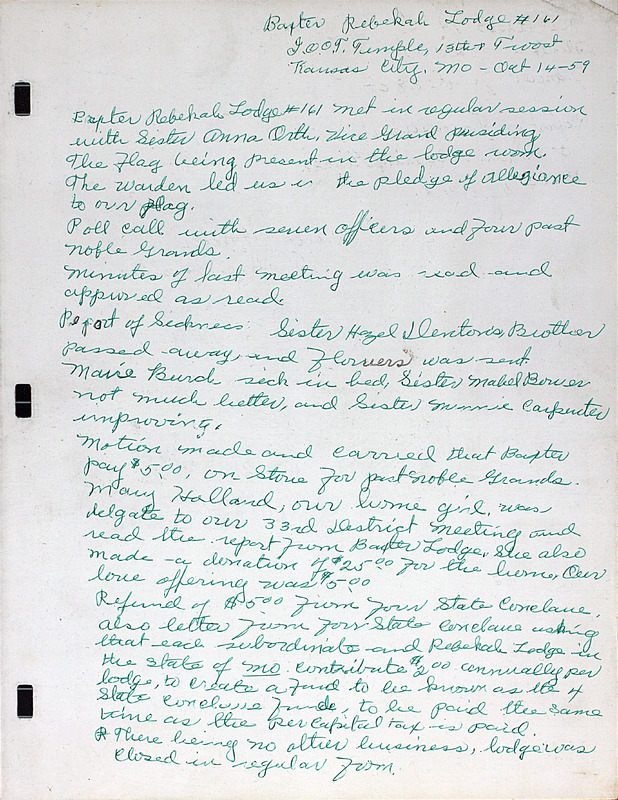 Baxter Rebekah Lodge #161
I.O.O.F. Temple, 13th & Troost
Kansas City, Mo - Oct 14-59
Baxter Rebekah Lodge #161 met in regular session
with Sister Anna Orth, Vice Grand presiding
The Flag being present in the lodge room.
The warden led us in the pledge of allegiance
to our flag.
Roll call with seven officers and four past
noble Grands.
minutes of last meeting was read and
approved as read.
Report of Sickness Sister Hazel Denton's, Brother
passed away and Flowers was sent
Marie Burch sick in bed, Sister Mabel Bower
not much better, and Sister Minnie Carpenter
improving.
Motion made and carried that Baxter
pay $5.00, on Stove for past noble Grands.
Mary Holland, our home girl, was
delgate to our 33rd District Meeting and
read the report from Baxter Lodge, She also
made a donation of $25.00 for the home, Our
love offering was $5.00
Refund of $5.00 from Four State Conclave,
also letter from Four State conclave asking
that each subordinate and Rebekah Lodge in
the state of Mo. contribute $2.00 annually per
lodge, to create a fund to be known as the 4
State Conclave Funde, to be paid the same
time as the per capital tax is paid.
There being no other business, lodge was
closed in regular Form.